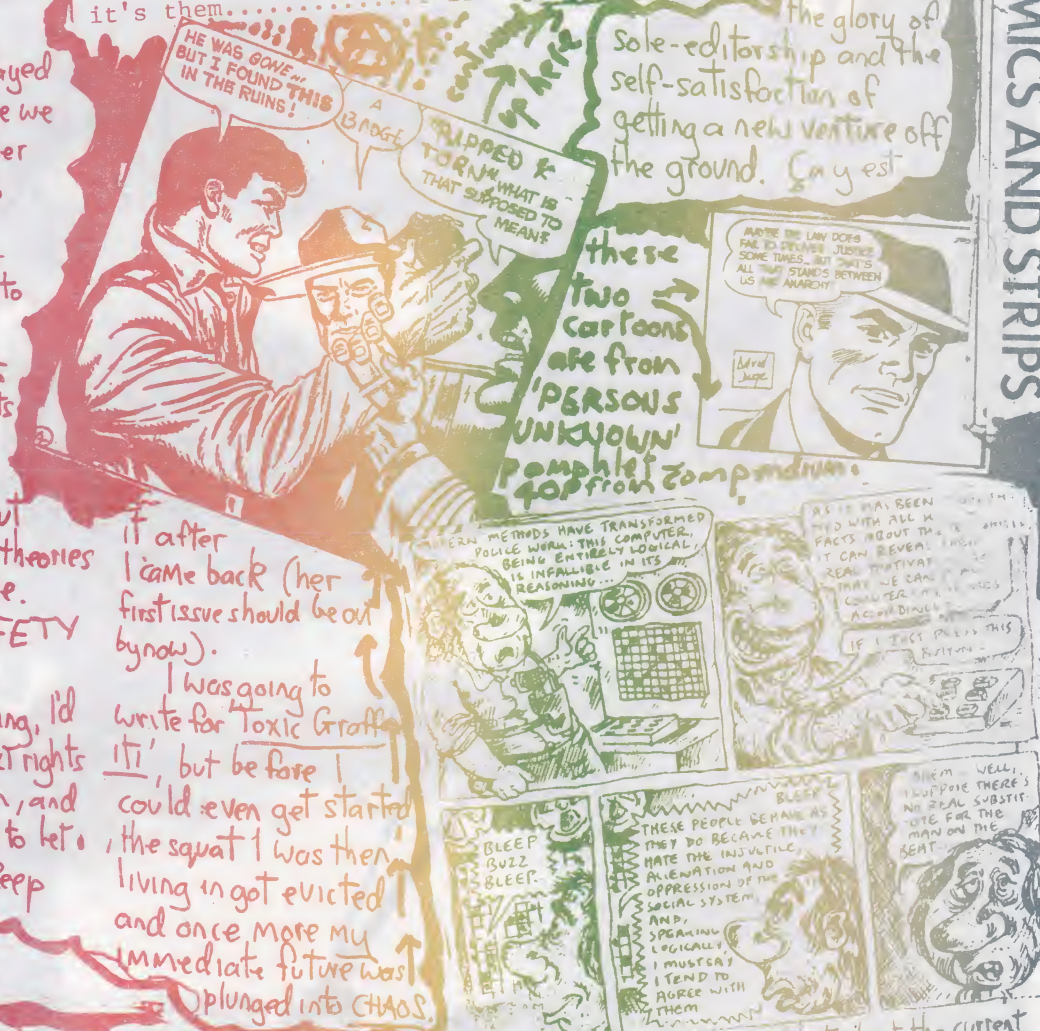 it's them..............
ayed
e we
er
to
ts
theories
e.
FETY
ng, I'd
rights
, and
to let
eep
HE WAS GONE...
BUT I FOUND THIS
IN THE RUINS!
A
BADGE
"RIPPED &
TORN". WHAT IS
THAT SUPPOSED TO
MEAN?
up here
the glory of
Sole-editorship and the
self-satisfaction of
getting a new venture off
the ground. Ça y est
MICS AND STRIPS
these
two
cartoons
are from
'PERSONS
UNKNOWN'
pamphlet compendium.
40p from
MAYBE THE LAW DOES
FAIL TO DELIVER JUSTICE
SOME TIMES.. BUT THAT'S
ALL THAT STANDS BETWEEN
US AND ANARCHY!
it after
I came back (her
first issue should be out
by now).
I was going to
write for 'Toxic Graff-
iti', but before I
could even get started
the squat I was then
living in got evicted
and once more my
immediate future was
plunged into CHAOS.
METHODS HAVE TRANSFORMED
POLICE WORK: THIS COMPUTER,
BEING ENTIRELY LOGICAL
IS INFALLIBLE IN ITS
REASONING...
AS IT HAS BEEN
WITH ALL
FACTS ABOUT
IT CAN REVEAL THEIR
REAL
THAT WE CAN
ACCORDINGLY
IF I JUST PRESS THIS
BUTTON..
BLEEP
BUZZ
BLEEP.
BLEEP
THESE PEOPLE BEHAVE AS
THEY DO BECAUSE THEY
HATE THE INJUSTICE,
ALIENATION AND
OPPRESSION OF THE
SOCIAL SYSTEM
AND,
SPEAKING
LOGICALLY
I MUST SAY
I TEND TO
AGREE WITH
THEM
AHEM.. WELL,
I SUPPOSE THERE'S
NO REAL SUBSTIT-
UTE FOR THE
MAN ON THE
BEAT..
current